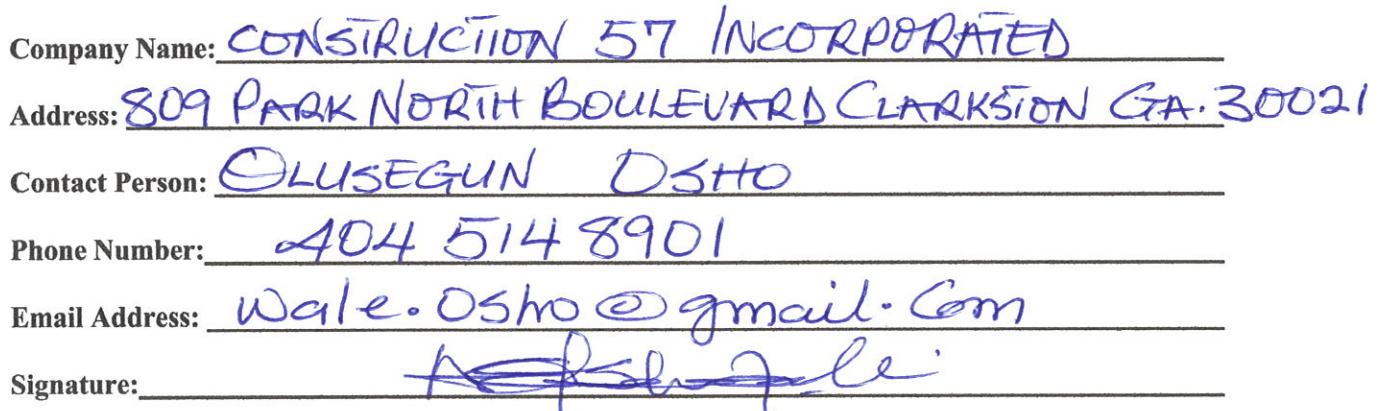 Company Name: CONSTRUCTION 57 INCORPORATED
Address: 809 PARK NORTH BOULEVARD CLARKSTON GA. 30021
Contact Person: OLUSEGUN OSHO
Phone Number: 404 514 8901
Email Address: Wale.Osho@gmail.Com
Signature: